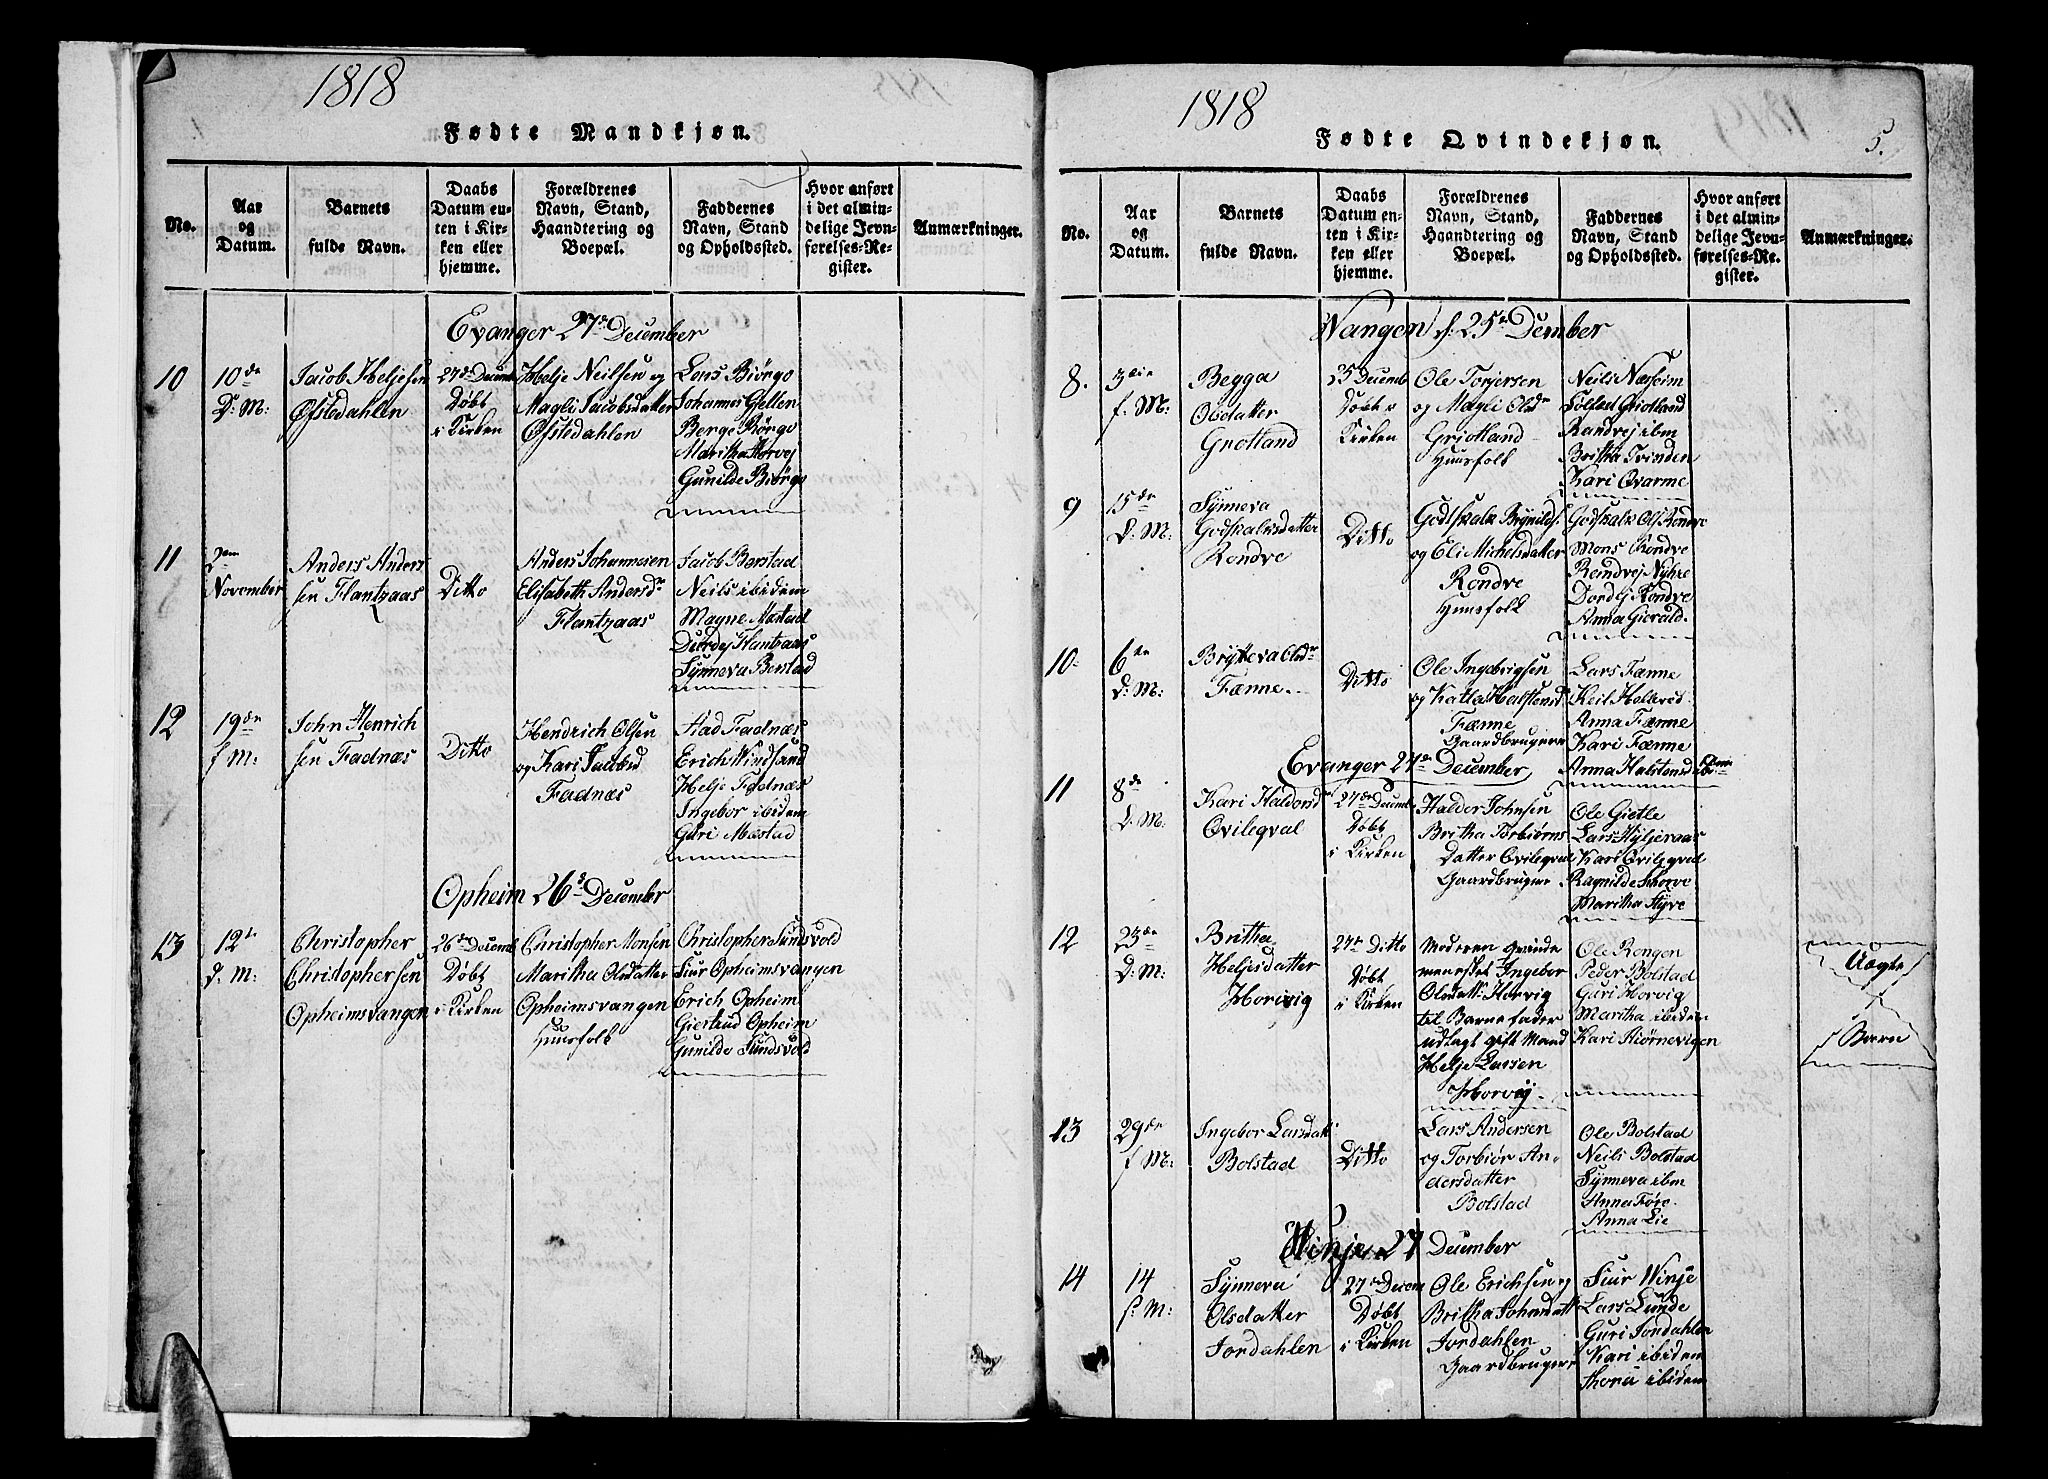 1818
Fødte Mandkjøn.
No.
Aar
og
Datum.
Barnets
fulde Navn.
Daabs
Datum en-
ten i Kir-
ken eller
hjemme.
Forældrenes
Navn, Stand,
Haandtering og
Boepæl.
Faddernes
Navn, Stand
og Opholdssted.
Hvor anført
i det almin-
delige Jevn-
førelses-Re-
gister.
Anmærkninger.
Evanger 27de December
10
10de
D: M:
Jacob Heljesen
Øfstedahlen
27de Decemb
Døbt
i Kirken
Helje Neilsen og
Magli Jacobsdatter
Øfstedahlen
Lars Biørgo
Johannes Gellen
Berge Biørgo
Maritha Horvej
Gunilde Biørgo
11
2den
November
Anders Anders
sen Flantzaas
Ditto
Anders Johannesen
Elisabeth Andersdr
Flantzaas
Jacob Borstad
Neils ibidem
Magne Mæstad
Durdej Flantzaas
Synneva Borstad
12
19de
f M:
John Henrich
sen Fadnæs
Ditto
Hendrich Olsen
og Kari Jacobsd
Fadnæs
Aad Fadnæs
Erich Windsand
Helje Fadnæs
Ingebor ibidem
Guri Mæstad
Opheim 26de December
13
12te
d. M:
Christopher
Christophersen
Opheimsvangen
26de Decemb
Døbt
i Kirken
Christopher Monsen
Maritha Olsdatter
Opheimsvangen
Huusfolk
Christopher Sundsvold
Siur Opheimsvangen
Erich Opheim
Giertrud Opheim
Gunilde Sundsvold
1818
5.
Fødte Qvindekjøn.
No.
Aar
og
Datum.
Barnets
fulde Navn.
Daabs
Datum en-
ten i Kir-
ken eller
hjemme.
Forældrenes
Navn, Stand,
Haandtering og
Boepæl.
Faddernes
Navn, Stand
og Opholdssted.
Hvor anført
i det almin-
delige Jevn-
førelses-Re-
gister.
Anmærkninger.
Wangen d: 25de Dember
8.
3die
f. M:
Begga
Olsdatter
Grotland
25 Decemb
Døbt i
Kirken
Ole Torjersen
og Magli Olsdr
Griotland
Huusfolk
Neils Næsheim
Sølfast Griotland
Randvej ibm
Britha Tvinden
Kari Qvarme
9
15de
d. M:
Synneva
Godskalksdatter
Rondve
Ditto
Godskalk Brynilds.
og Eli Michelsdatter
Rondve
Huusfolk
Godskalk Ols Rondve
Mons Rondve
Randvej Nyhre
Dordej Rondve
Anna Gierald.
10
6te
D: M:
Brytteva Olsdr
Fænne.
Ditto
Ole Ingebrigsen
og Katla Halstensd
Fænne
Gaardbrugere
Lars Fænne
Keil Hollered
Anna Fænne
Kari Fænne
Anna Halstensd ibm
Evanger 27de December
11
8de
d. M.
Kari Haldorsd
Qvileqval
27de Decemb
Døbt
i Kirken
Haldor Johnsen
Britha Torbiørns
Datter Qvileqval
Gaardbrugere
Ole Gietle
Lars Hyljeraas
Kari Qvileqval
Ragnilde Skorve
Maritha Hyve
12
23de
D: M:
Britha
Heljesdatter
Horvig
27de Ditto
Døbt
i Kirken
Moderen Qvinde
mennesket Ingebor
Olsdatt: Horvig
til Barnefader
udlagt gift Mand
Helje Larsen
Horvig
Ole Rongen
Peder Bolstad
Guri Horvig
Maritha ibidem
Kari Hiørnevigen
Uægte
Barn
13
29de
f M:
Ingebor Larsdatt
Bolstad
Ditto
Lars Andersen
og Torbiør An-
dersdatter
Bolstad
Ole Bolstad
Neils Bolstad
Synneva ibm
Anna Føre
Anna Lie
Winje 27 December
14
14
f. M:
Synneva
Olsdatter
Jordahlen
27de Decem
Døbt
i Kirken
Ole Erichsen og
Britha Johansdatt
Jordahlen
Gaardbrugere
Siur Winje
Lars Lunde
Guri Jordahlen
Kari ibidem
Thora ibidem